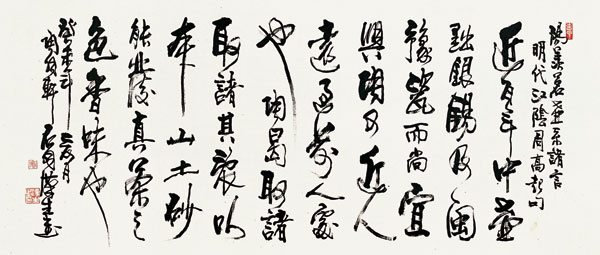 陽羨茗壺系諸言
明代江陰周高起句
近百年中壺
黜銀錫及閩
豫瓷而尚宜
興陶又近人
遠過前人處
也陶曷取諸
取諸其製以
本山土砂
能發真茶之
色香味也
癸未年